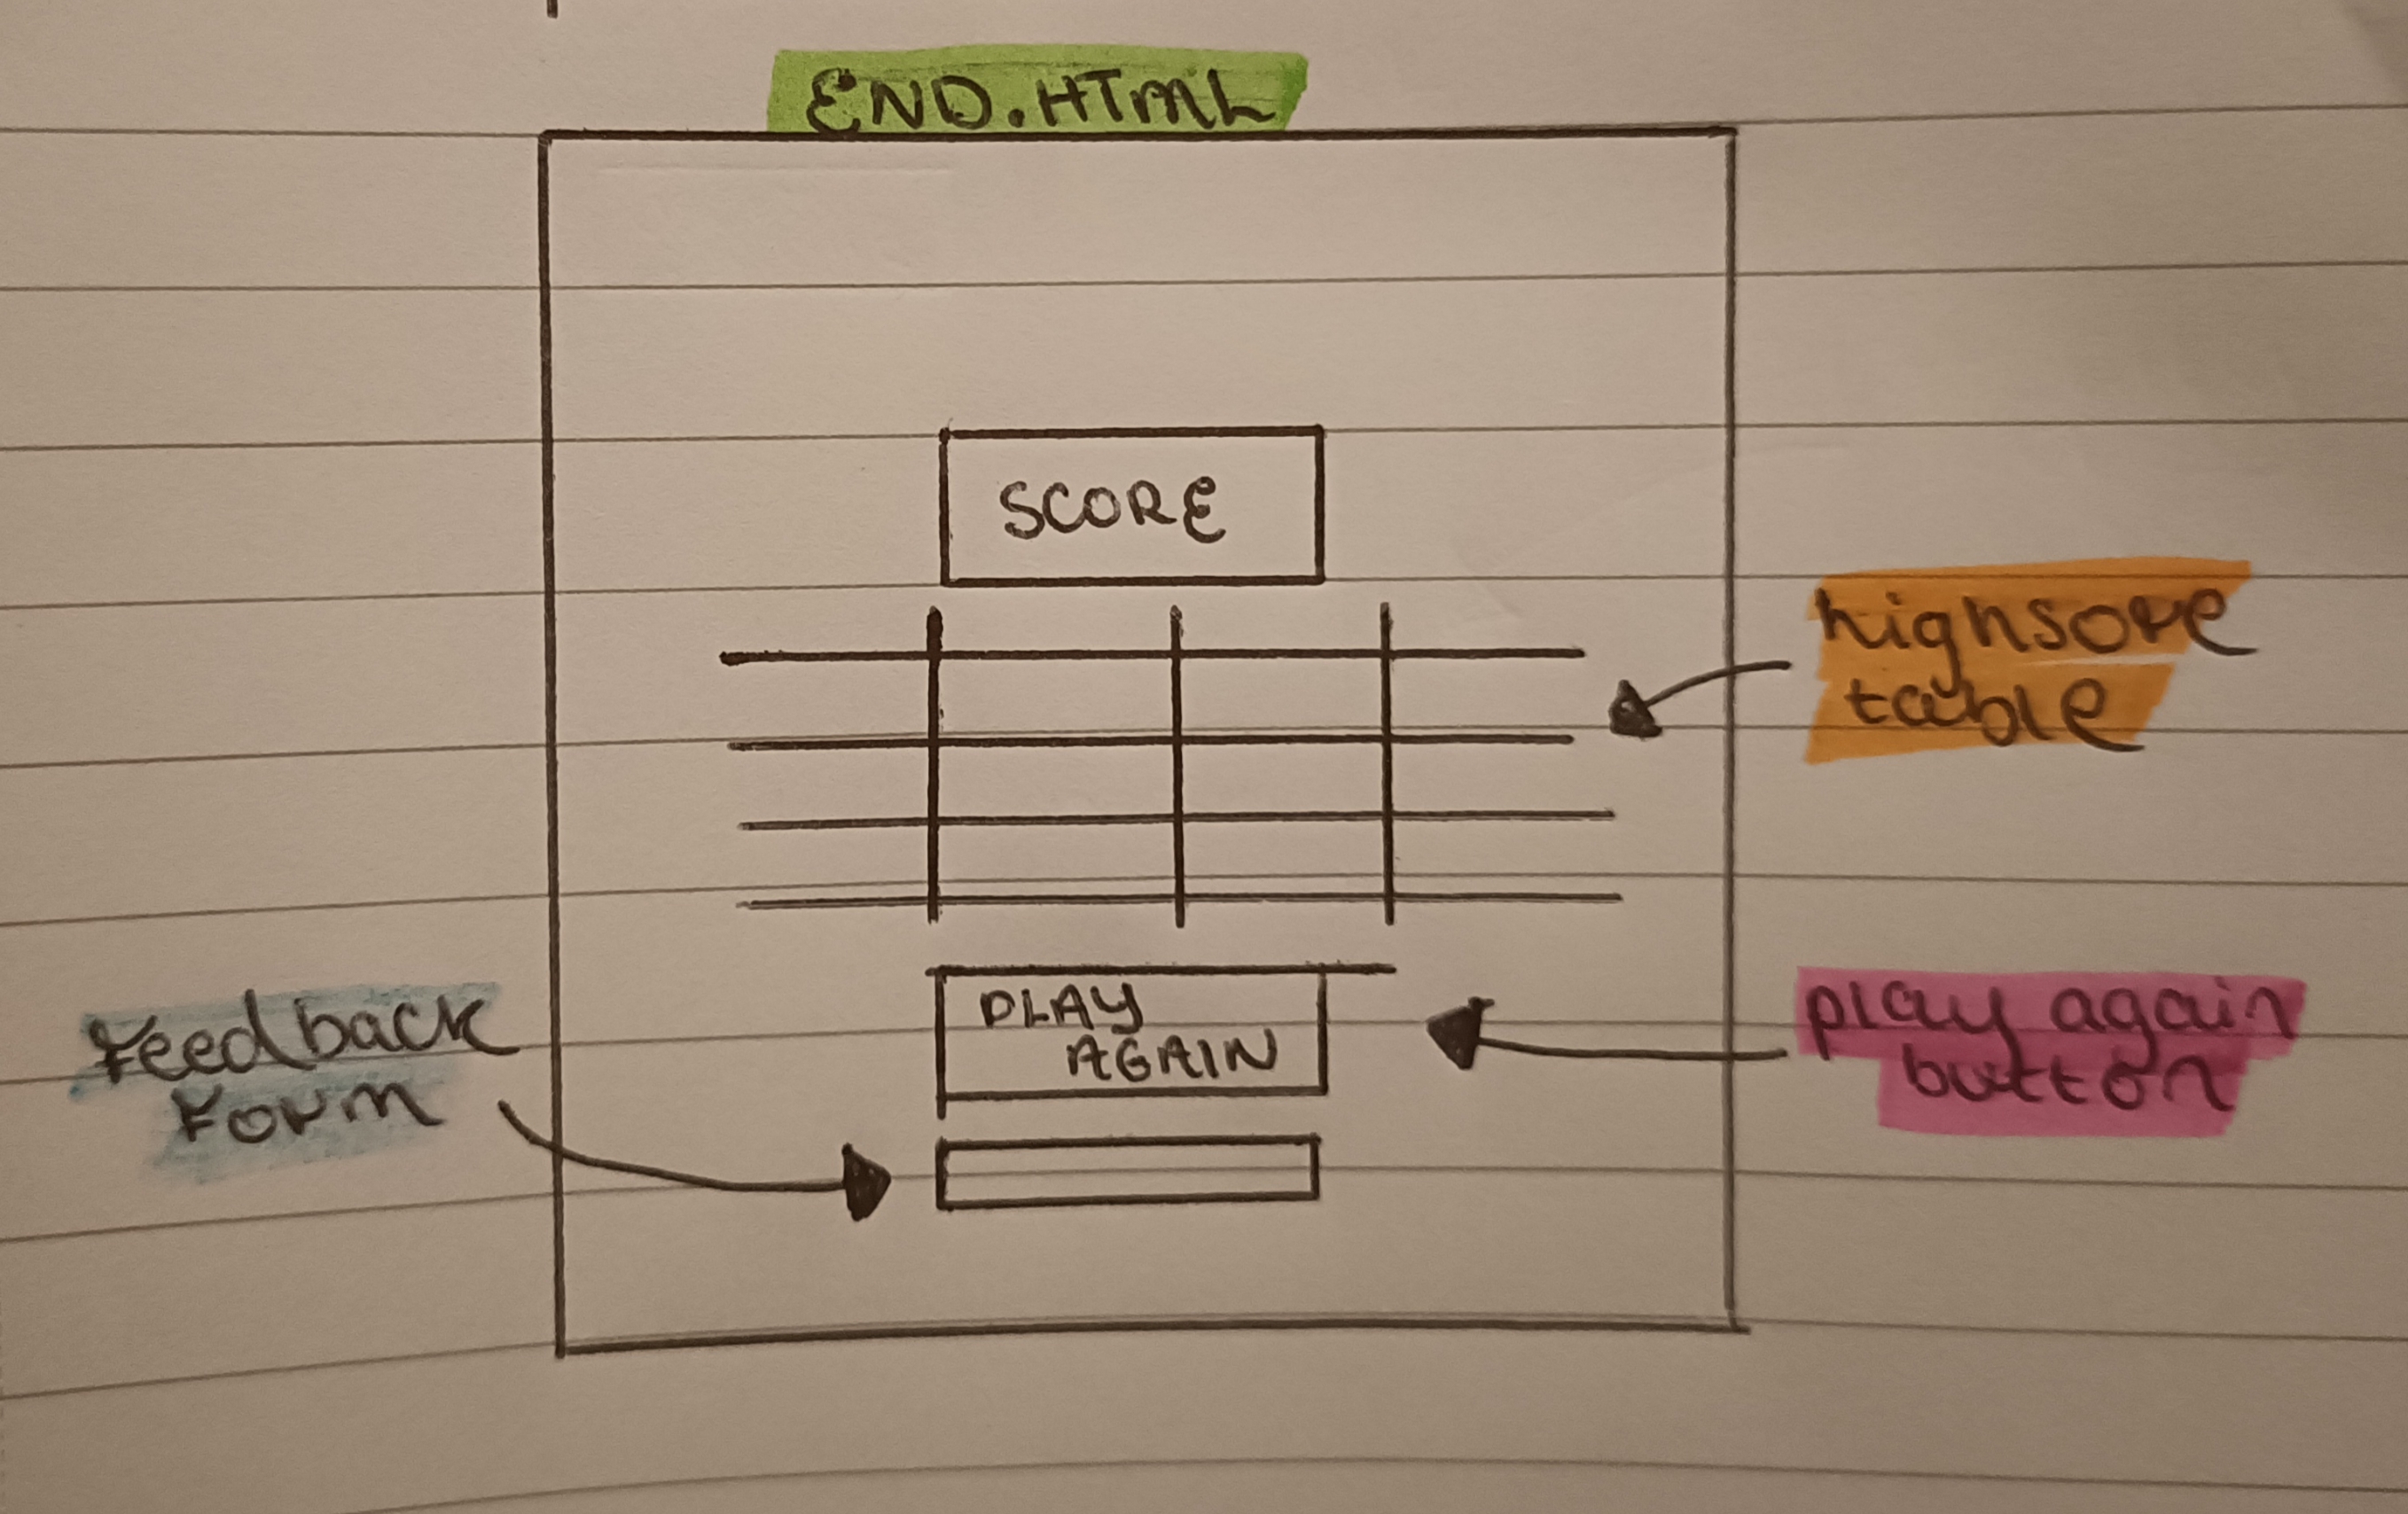 END.HTML
SCORE
highsore
table
PLAY
AGAIN
play again
button
Feedback
Form